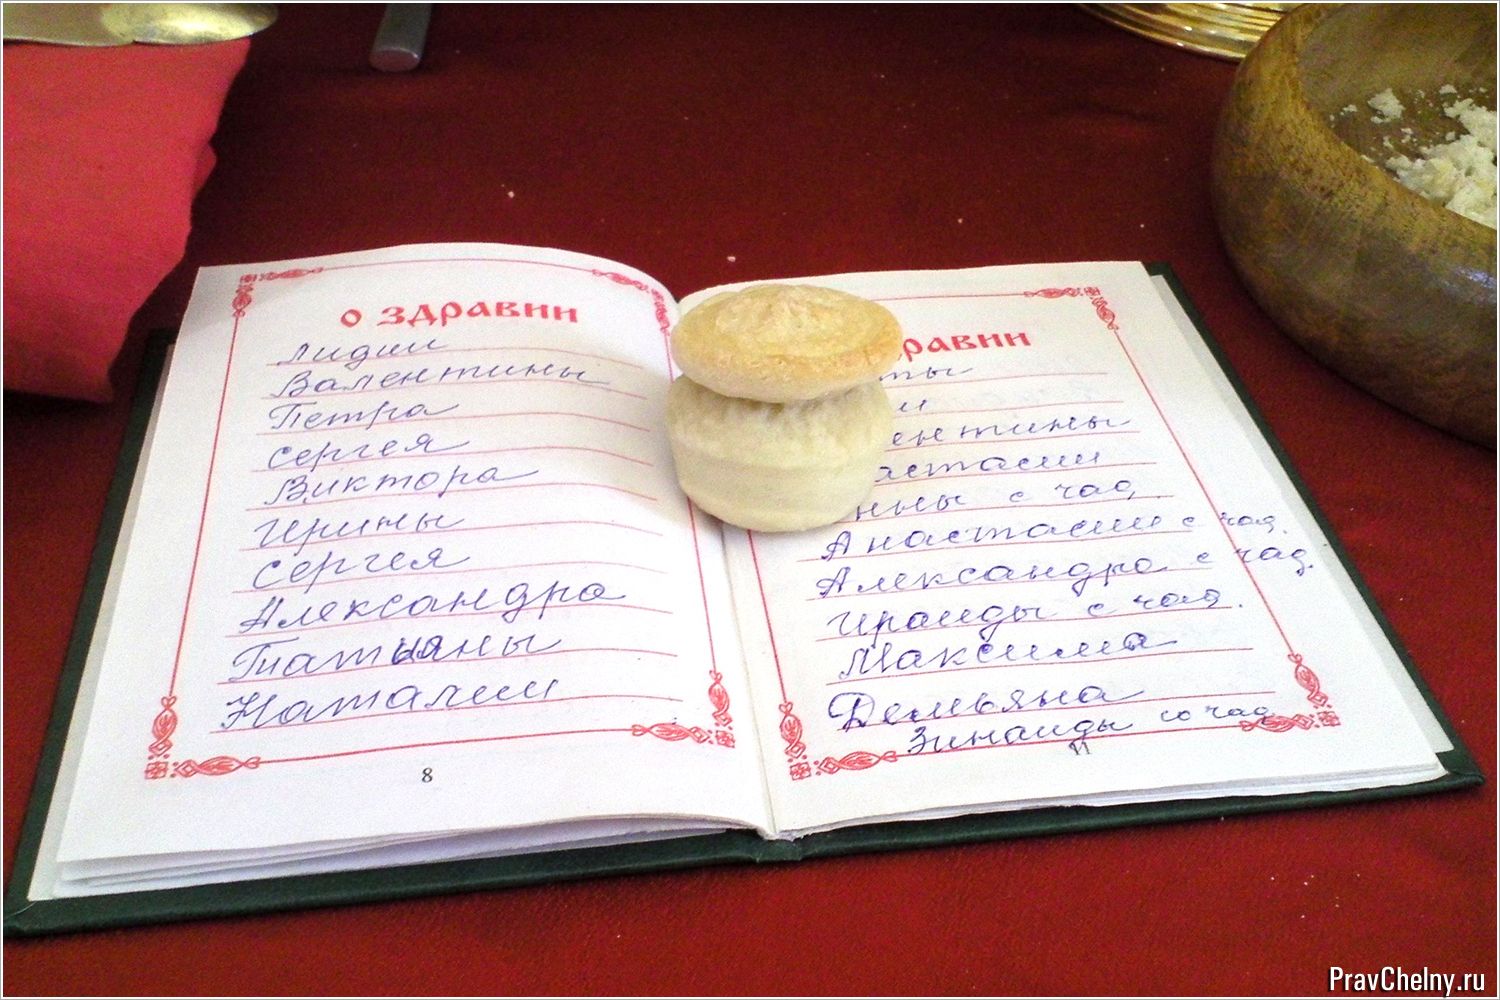 о здравии
Лидии
Валентины
Петра
Сергея
Виктора
Ирины
Сергея
Александра
Татьяны
Наталии
8
равии
ты
ии
ентины
астасии
нны с чад.
Анастасии с чад.
Александра с чад.
Ираиды с чад.
Максима
Демьяна
Зинаиды со чад
11
PravChelny.ru